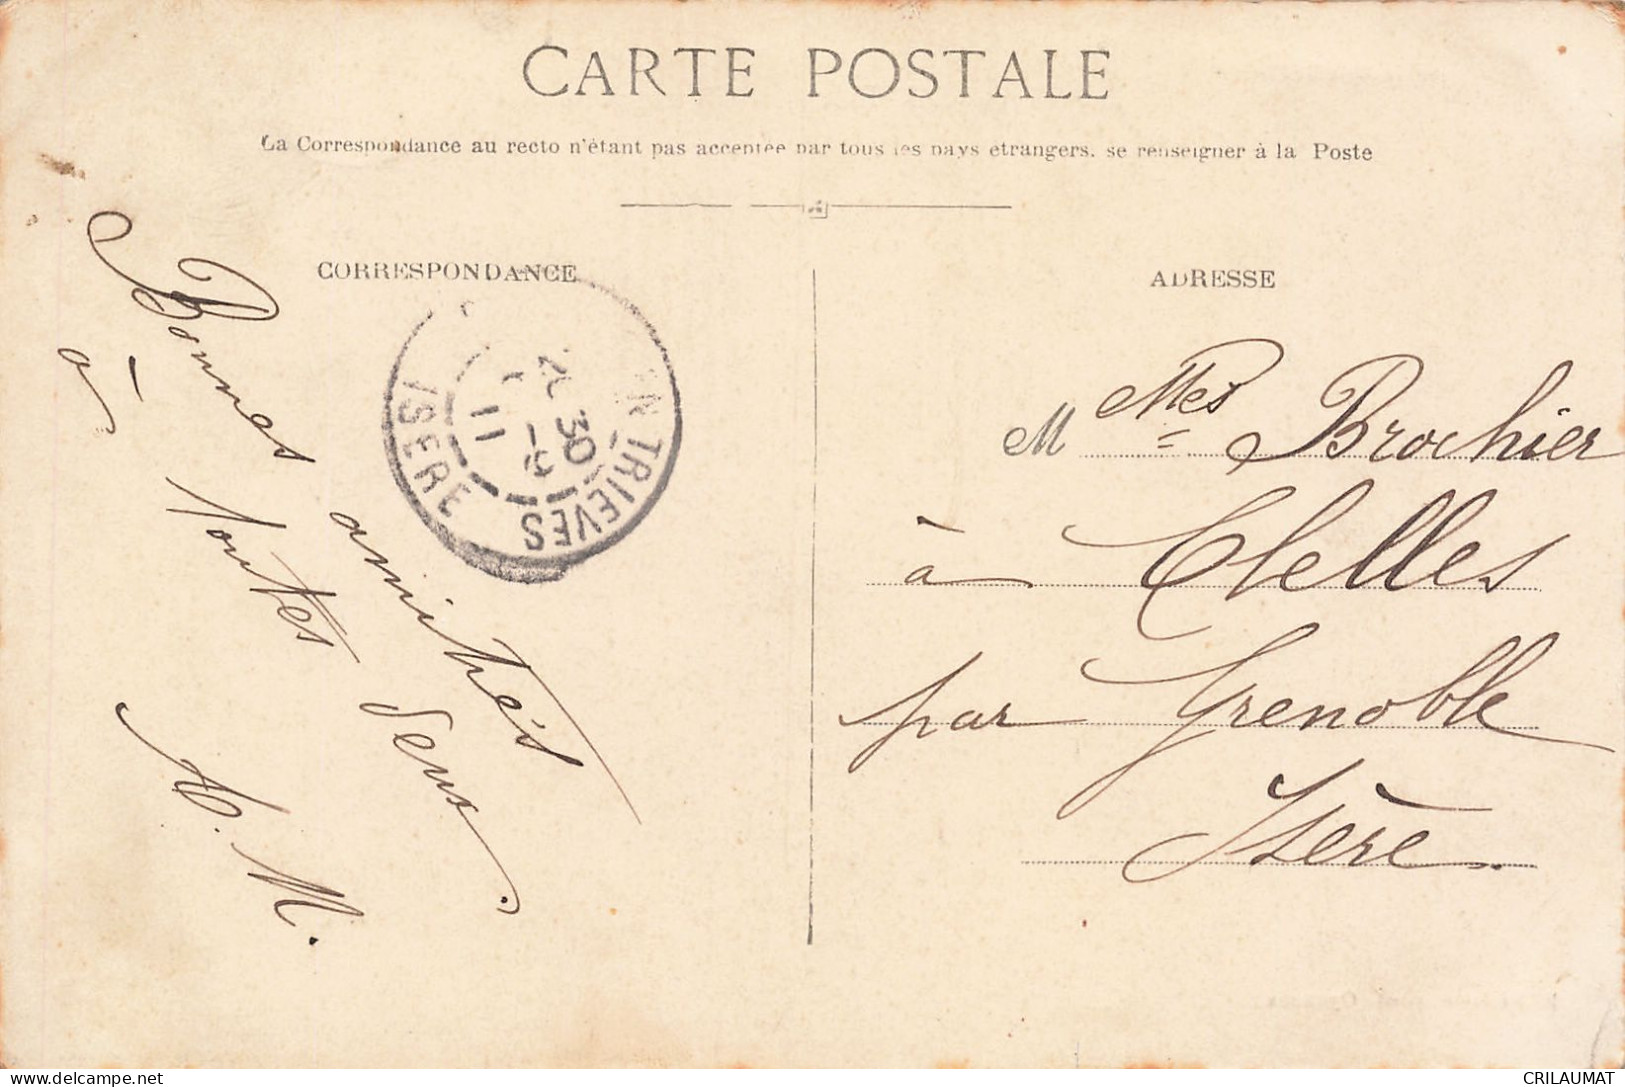 CARTE POSTALE
La Correspondance au recto n'étant pas acceptée par tous les pays etrangers. se renseigner à la Poste
CORRESPONDANCE
ADRESSE
Bonnes amitiés
à toutes deux.
A. M.
TRIEVES
ISERE
30
11
M Mlles Brochier
à Clelles
par Grenoble
Isère.
delcampe.net
CRILAUMAT